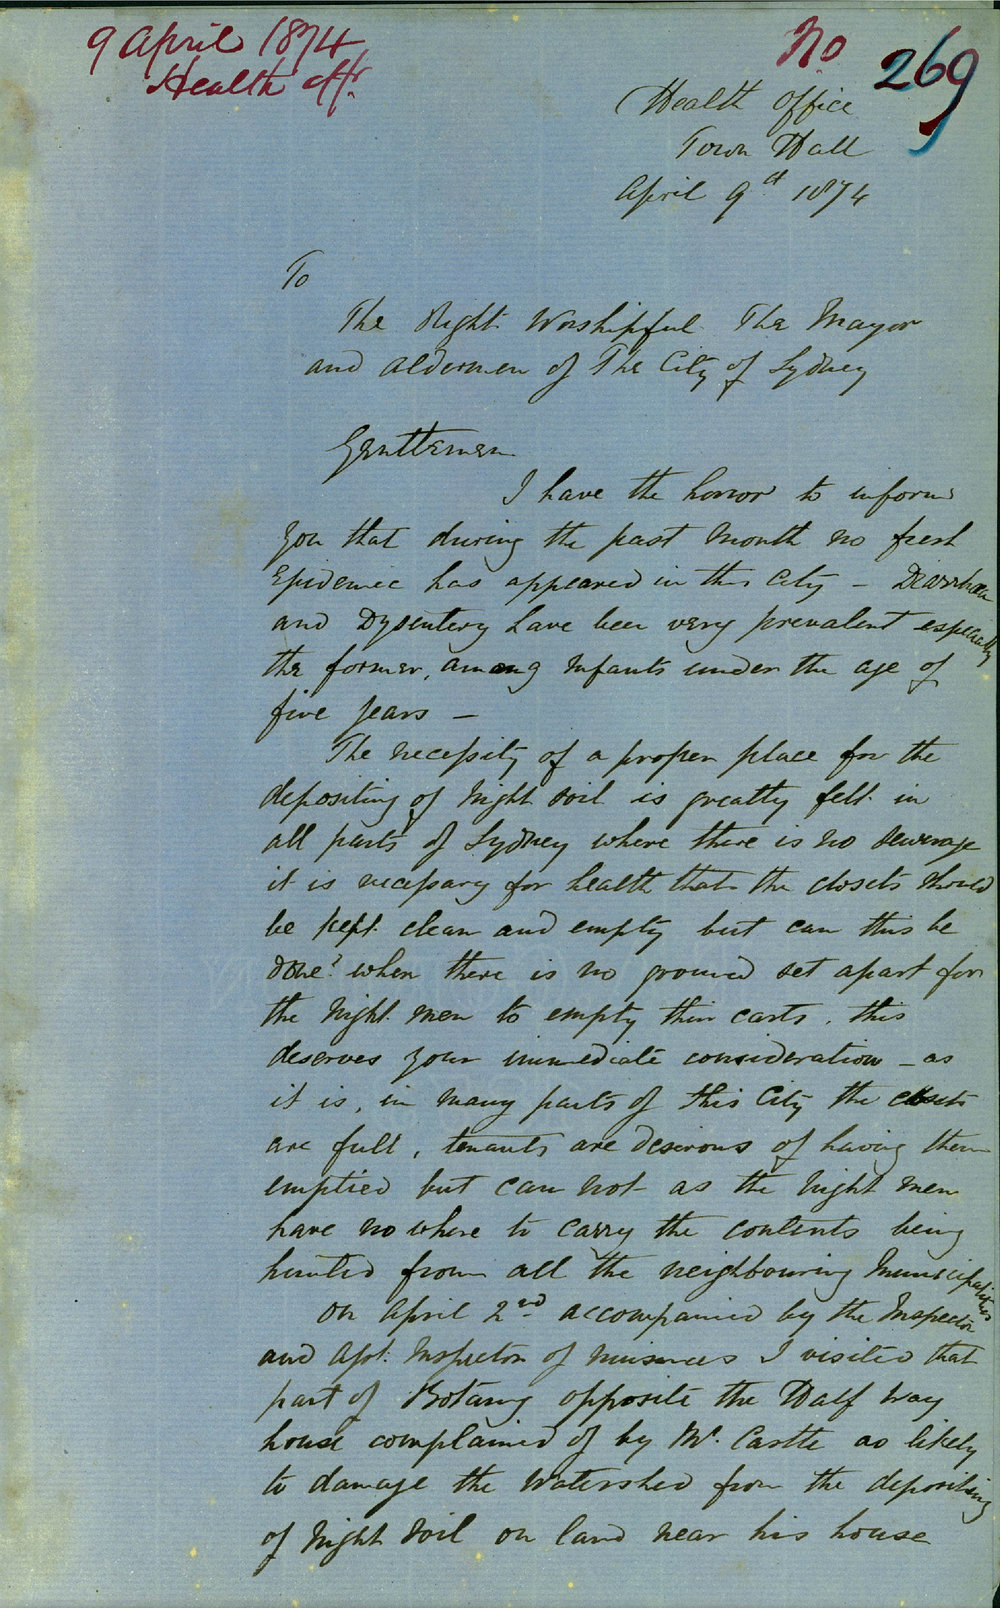 9 April 1874
Health Offr.
No 269
Health Office
Town Hall
April 9th 1874
To
The Right Worshipful The Mayor
and Aldermen of The City of Sydney
Gentlemen
I have the honor to inform
you that during the past month no fresh
Epidemic has appeared in this City – Diarrhoea
and Dysentery have been very prevalent especially
the former, among Infants under the age of
five years –
The necessity of a proper place for the
depositing of Night Soil is greatly felt in
all parts of Sydney where there is no sewerage
it is necessary for health that the closets should
be kept clean and empty but can this be
done? when there is no ground set apart for
the Night men to empty their carts, this
deserves your immediate consideration – as
it is, in many parts of this City the closets
are full, tenants are desirous of having them
emptied but can not as the Night men
have no where to carry the contents being
hunted from all the neighbouring Municipalities
On April 2nd accompanied by the Inspector
and Asst. Inspector of Nuisances I visited that
part of Botany opposite the Half Way
house complained of by Mr. Castle as likely
to damage the Watershed from the depositing
of Night Soil on land near his house